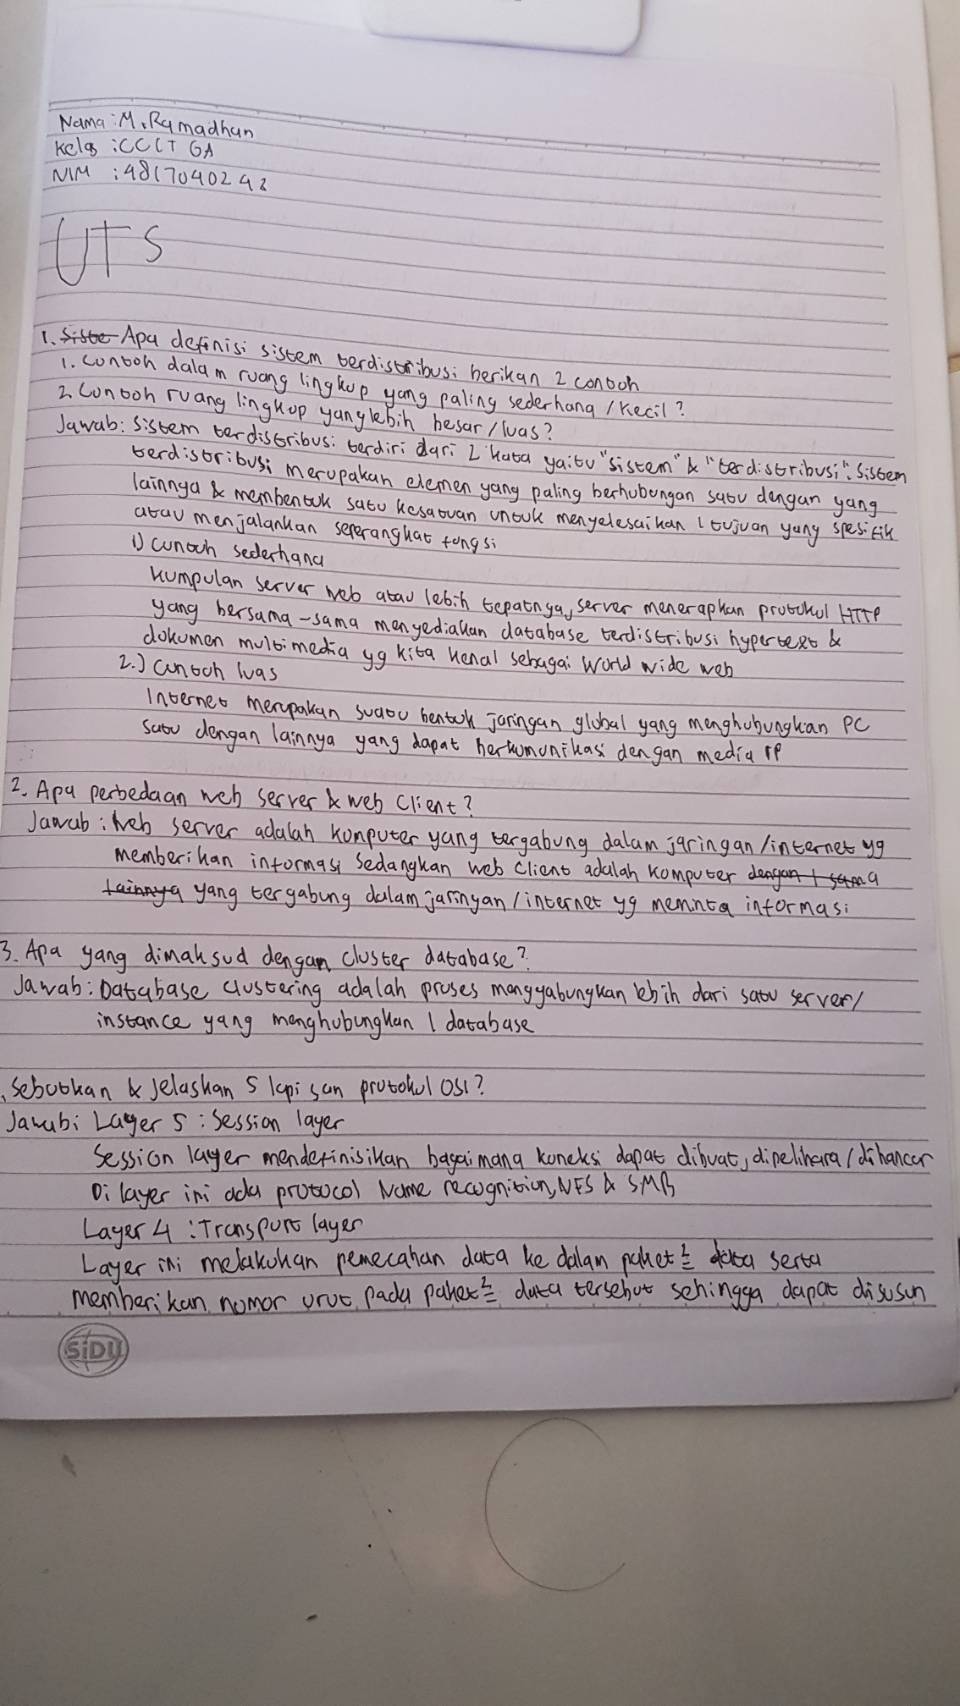 Nama : M. Ramadhan
Kelas : CCIT 6A
NIM : 4817040242
UTS
1. Siste Apa definisi sistem terdistribusi berikan 2 contoh
1. Contoh dalam ruang lingkup yang paling sederhana / kecil ?
2. Contoh ruang lingkup yang lebih besar / luas ?
Jawab : Sistem terdistribusi terdiri dari 2 kata yaitu "sistem" & "terdistribusi". Sistem
terdistribusi merupakan elemen yang paling berhubungan satu dengan yang
lainnya & membentuk satu kesatuan untuk menyelesaikan 1 tujuan yang spesifik
atau menjalankan seperangkat fungsi
1) Contoh sederhana
Kumpulan server web atau lebih tepatnya, server menerapkan protokol HTTP
yang bersama-sama menyediakan database terdistribusi hypertext &
dokumen multimedia yg kita kenal sebagai World wide web
2.) Contoh luas
Internet merupakan suatu bentuk jaringan global yang menghubungkan PC
satu dengan lainnya yang dapat berkomunikasi dengan media IP
2. Apa perbedaan web server & web client ?
Jawab : Web server adalah komputer yang tergabung dalam jaringan / internet yg
memberikan informasi sedangkan web client adalah komputer dengan 1 sama
lainnya yang tergabung dalam jaringan / internet yg meminta informasi
3. Apa yang dimaksud dengan cluster database ?
Jawab : Database clustering adalah proses menggabungkan lebih dari satu server /
instance yang menghubungkan 1 database
. Sebutkan & Jelaskan 5 lapisan protokol OSI ?
Jawab : Layer 5 : Session layer
Session layer mendefinisikan bagaimana koneksi dapat dibuat, dipelihara / dihancur
Di layer ini ada protocol Name recognition, NFS & SMB
Layer 4 : Transport layer
Layer ini melakukan pemecahan data ke dalam paket2 data serta
memberikan nomor urut pada paket2 data tersebut sehingga dapat disusun
SiDU